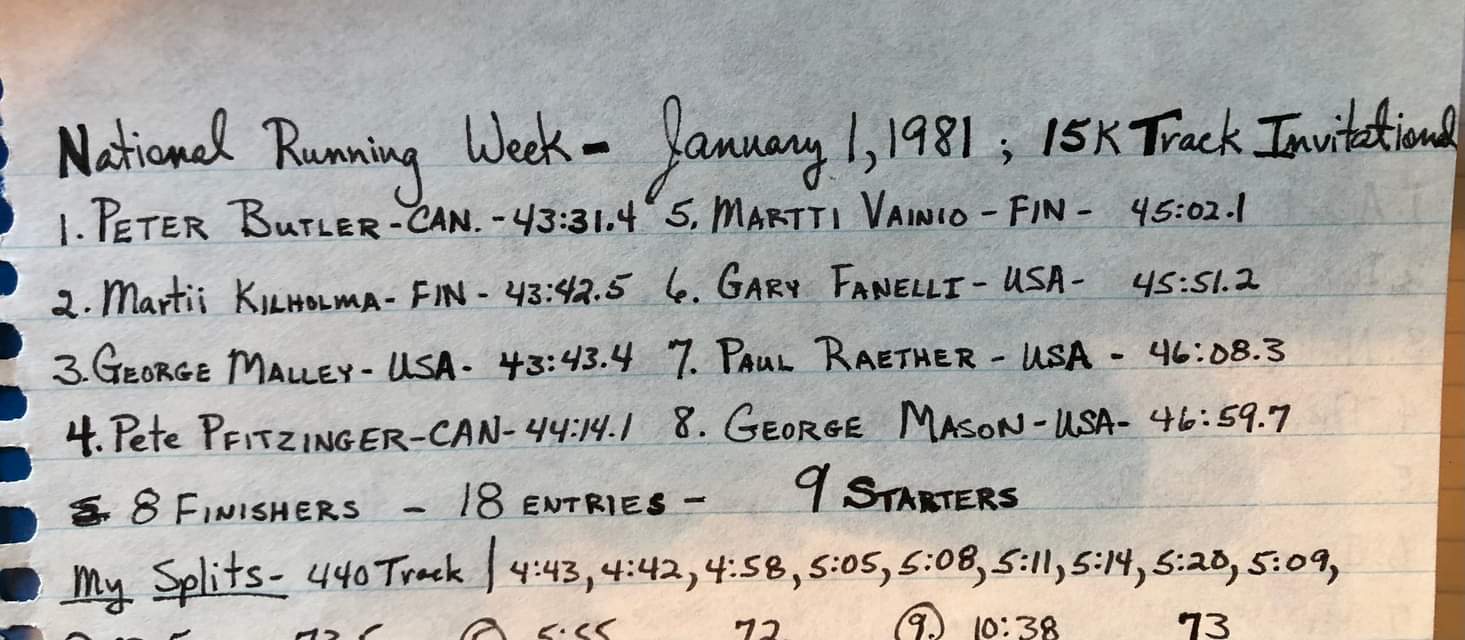 National Running Week - January 1, 1981 ; 15K Track Invitational
1. PETER BUTLER - CAN. - 43:31.4 5. MARTTI VAINIO - FIN - 45:02.1
2. Martii KILHOLMA - FIN - 43:42.5 6. GARY FANELLI - USA - 45:51.2
3. GEORGE MALLEY - USA - 43:43.4 7. PAUL RAETHER - USA - 46:08.3
4. Pete PFITZINGER - CAN - 44:14.1 8. GEORGE MASON - USA - 46:59.7
8 FINISHERS - 18 ENTRIES - 9 STARTERS
My Splits - 440 Track | 4:43, 4:42, 4:58, 5:05, 5:08, 5:11, 5:14, 5:20, 5:09,
5:55 72 9. 10:38 73